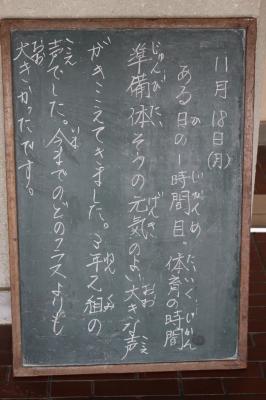 11月18日(月)
ある日の1時間目・体育の時間
準備体そうの元気のよい大きな声
がきこえてきました。3年2組の
声でした。今までのどのクラスよりも
大きかったです。